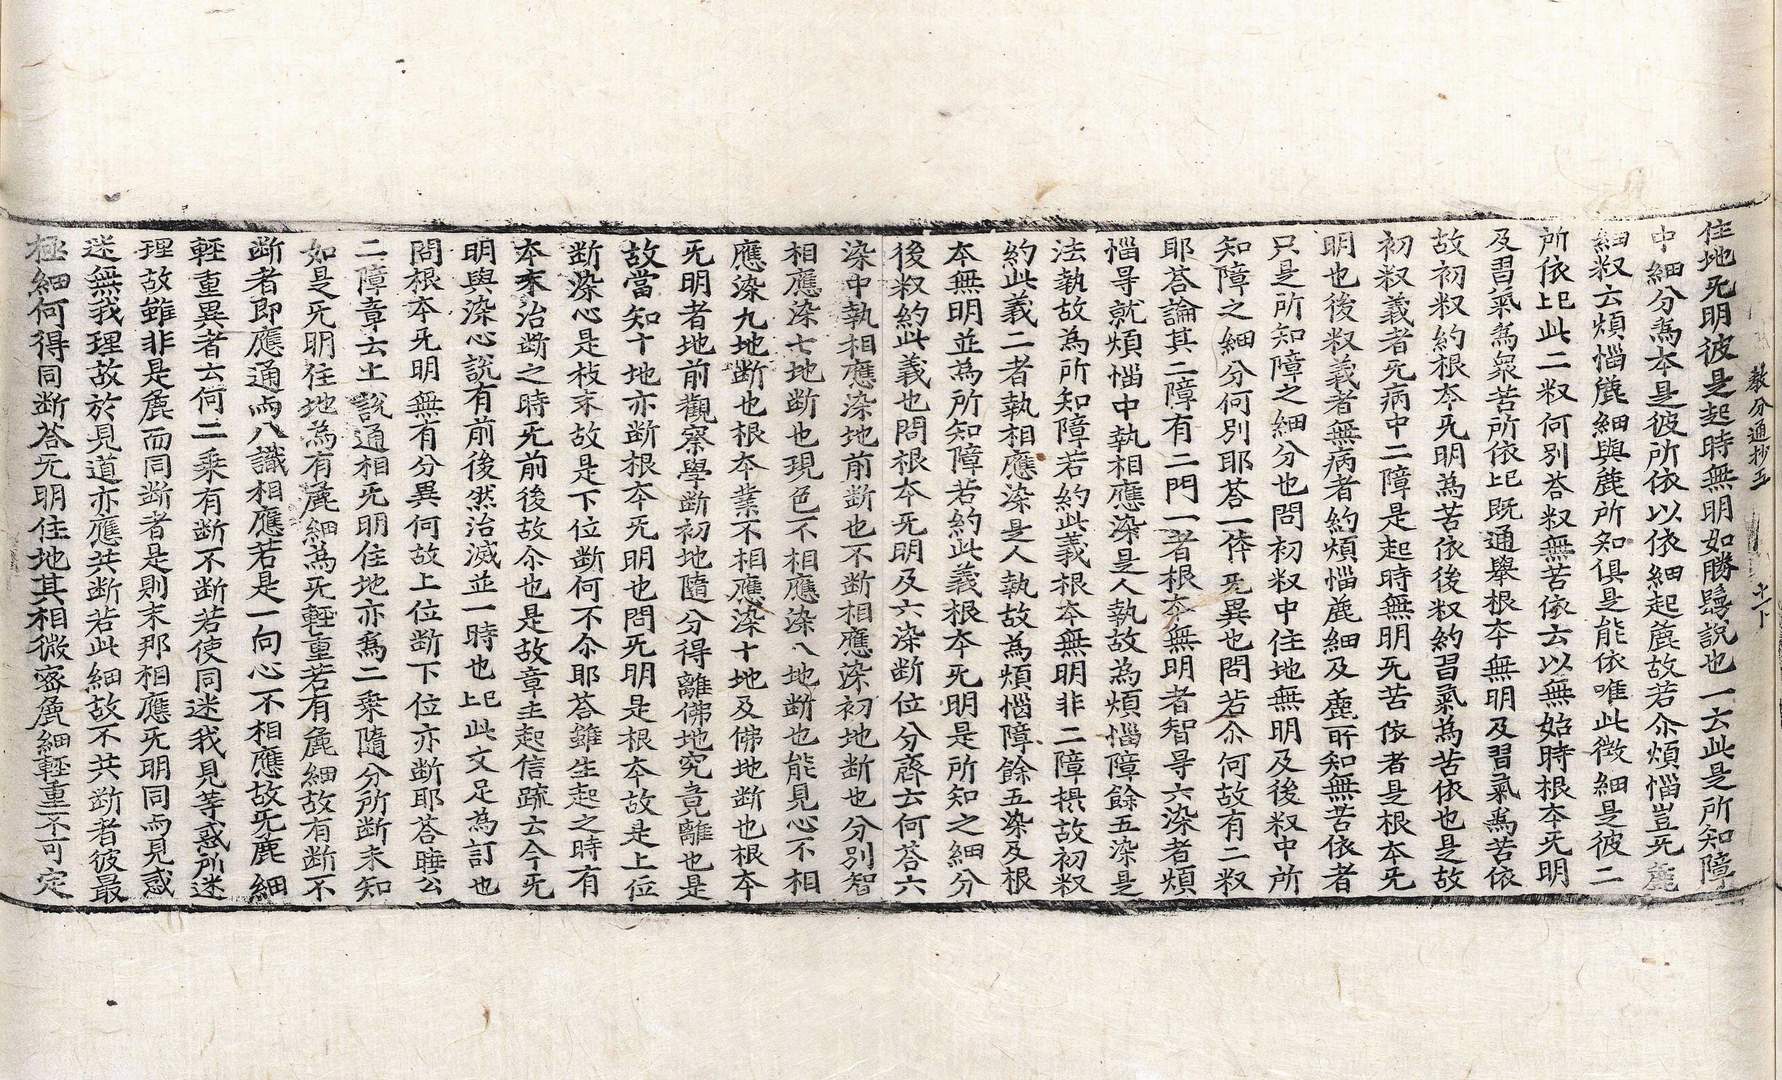 教分通抄五
住地无明彼是起時無明如勝鬘說也一云此是所知障
中細分爲本是彼所依以依細起麁故若尒煩惱豈无麁
細䆁云煩惱麁細與麁所知俱是能依唯此微細是彼二
所依巳此二䆁何別荅䆁無苦依云以無始時根本无明
及習氣爲衆苦所依巳旣通舉根本無明及習氣爲苦依
故初䆁約根本无明爲苦依後䆁約習氣爲苦依也是故
初䆁義者无病中二障是起時無明无苦依者是根本无
明也後䆁義者無病者約煩惱麁細及麁所知無苦依者
只是所知障之細分也問初䆁中住地無明及後䆁中所
知障之細分何別耶荅一体无異也問若尒何故有二䆁
耶荅論其二障有二門一者根本無明者智㝵六染者煩
惱㝵就煩惱中執相應染是人執故爲煩惱障餘五染是
法執故爲所知障若約此義根本無明非二障摂故初䆁
約此義二者執相應染是人執故爲煩惱障餘五染及根
本無明並爲所知障若約此義根本无明是所知之細分
後䆁約此義也問根本无明及六染断位分齊云何荅六
染中執相應染地前断也不断相應染初地断也分別智
相應染七地断也現色不相應染八地断也能見心不相
應染九地断也根本業不相應染十地及佛地断也根本
无明者地前觀察學断初地隨分得離佛地究竟離也是
故當知十地亦断根本无明也問无明是根本故是上位
断染心是枝末故是下位断何不尒耶荅雖生起之時有
本末治断之時无前後故尒也是故章主起信疏云今无
明與染心說有前後然治滅並一時也巳此文足爲訂也
問根本无明無有分異何故上位断下位亦断耶荅曉公
二障章云土說通相无明住地亦爲二乘隨分所断未知
如是无明住地爲有麁細爲无輕重若有麁細故有断不
断者即應通而八識相應若是一向心不相應故无麁細
輕重異者云何二乘有断不断若使同迷我見等惑所迷
理故雖非是麁而同断者是則末那相應无明同而見惑
迷無我理故於見道亦應共断若此細故不共断者彼最
極細何得同断荅无明住地其相微密麁細輕重不可定